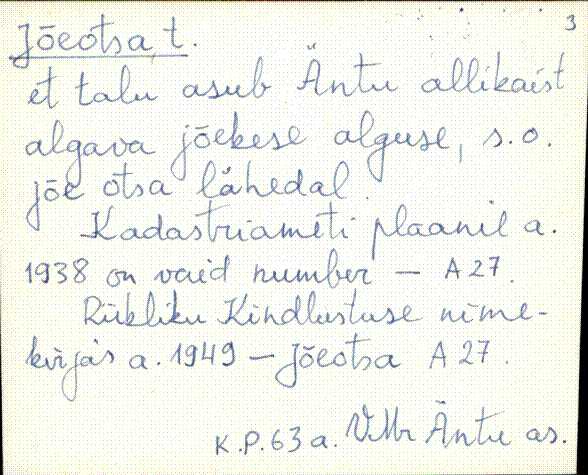 3
Jõeotsa, t.
et talu asub Äntu allikaist
algava jõekese alguse, s.o.
jõe otsa lähedal.
Kadastriameti plaanil a.
1938 on vaid number — A 27.
Riikliku Kindlustuse nime-
kirjas a. 1949 — Jõeotsa A 27.
K.P. 63 a. VMr Äntu as.